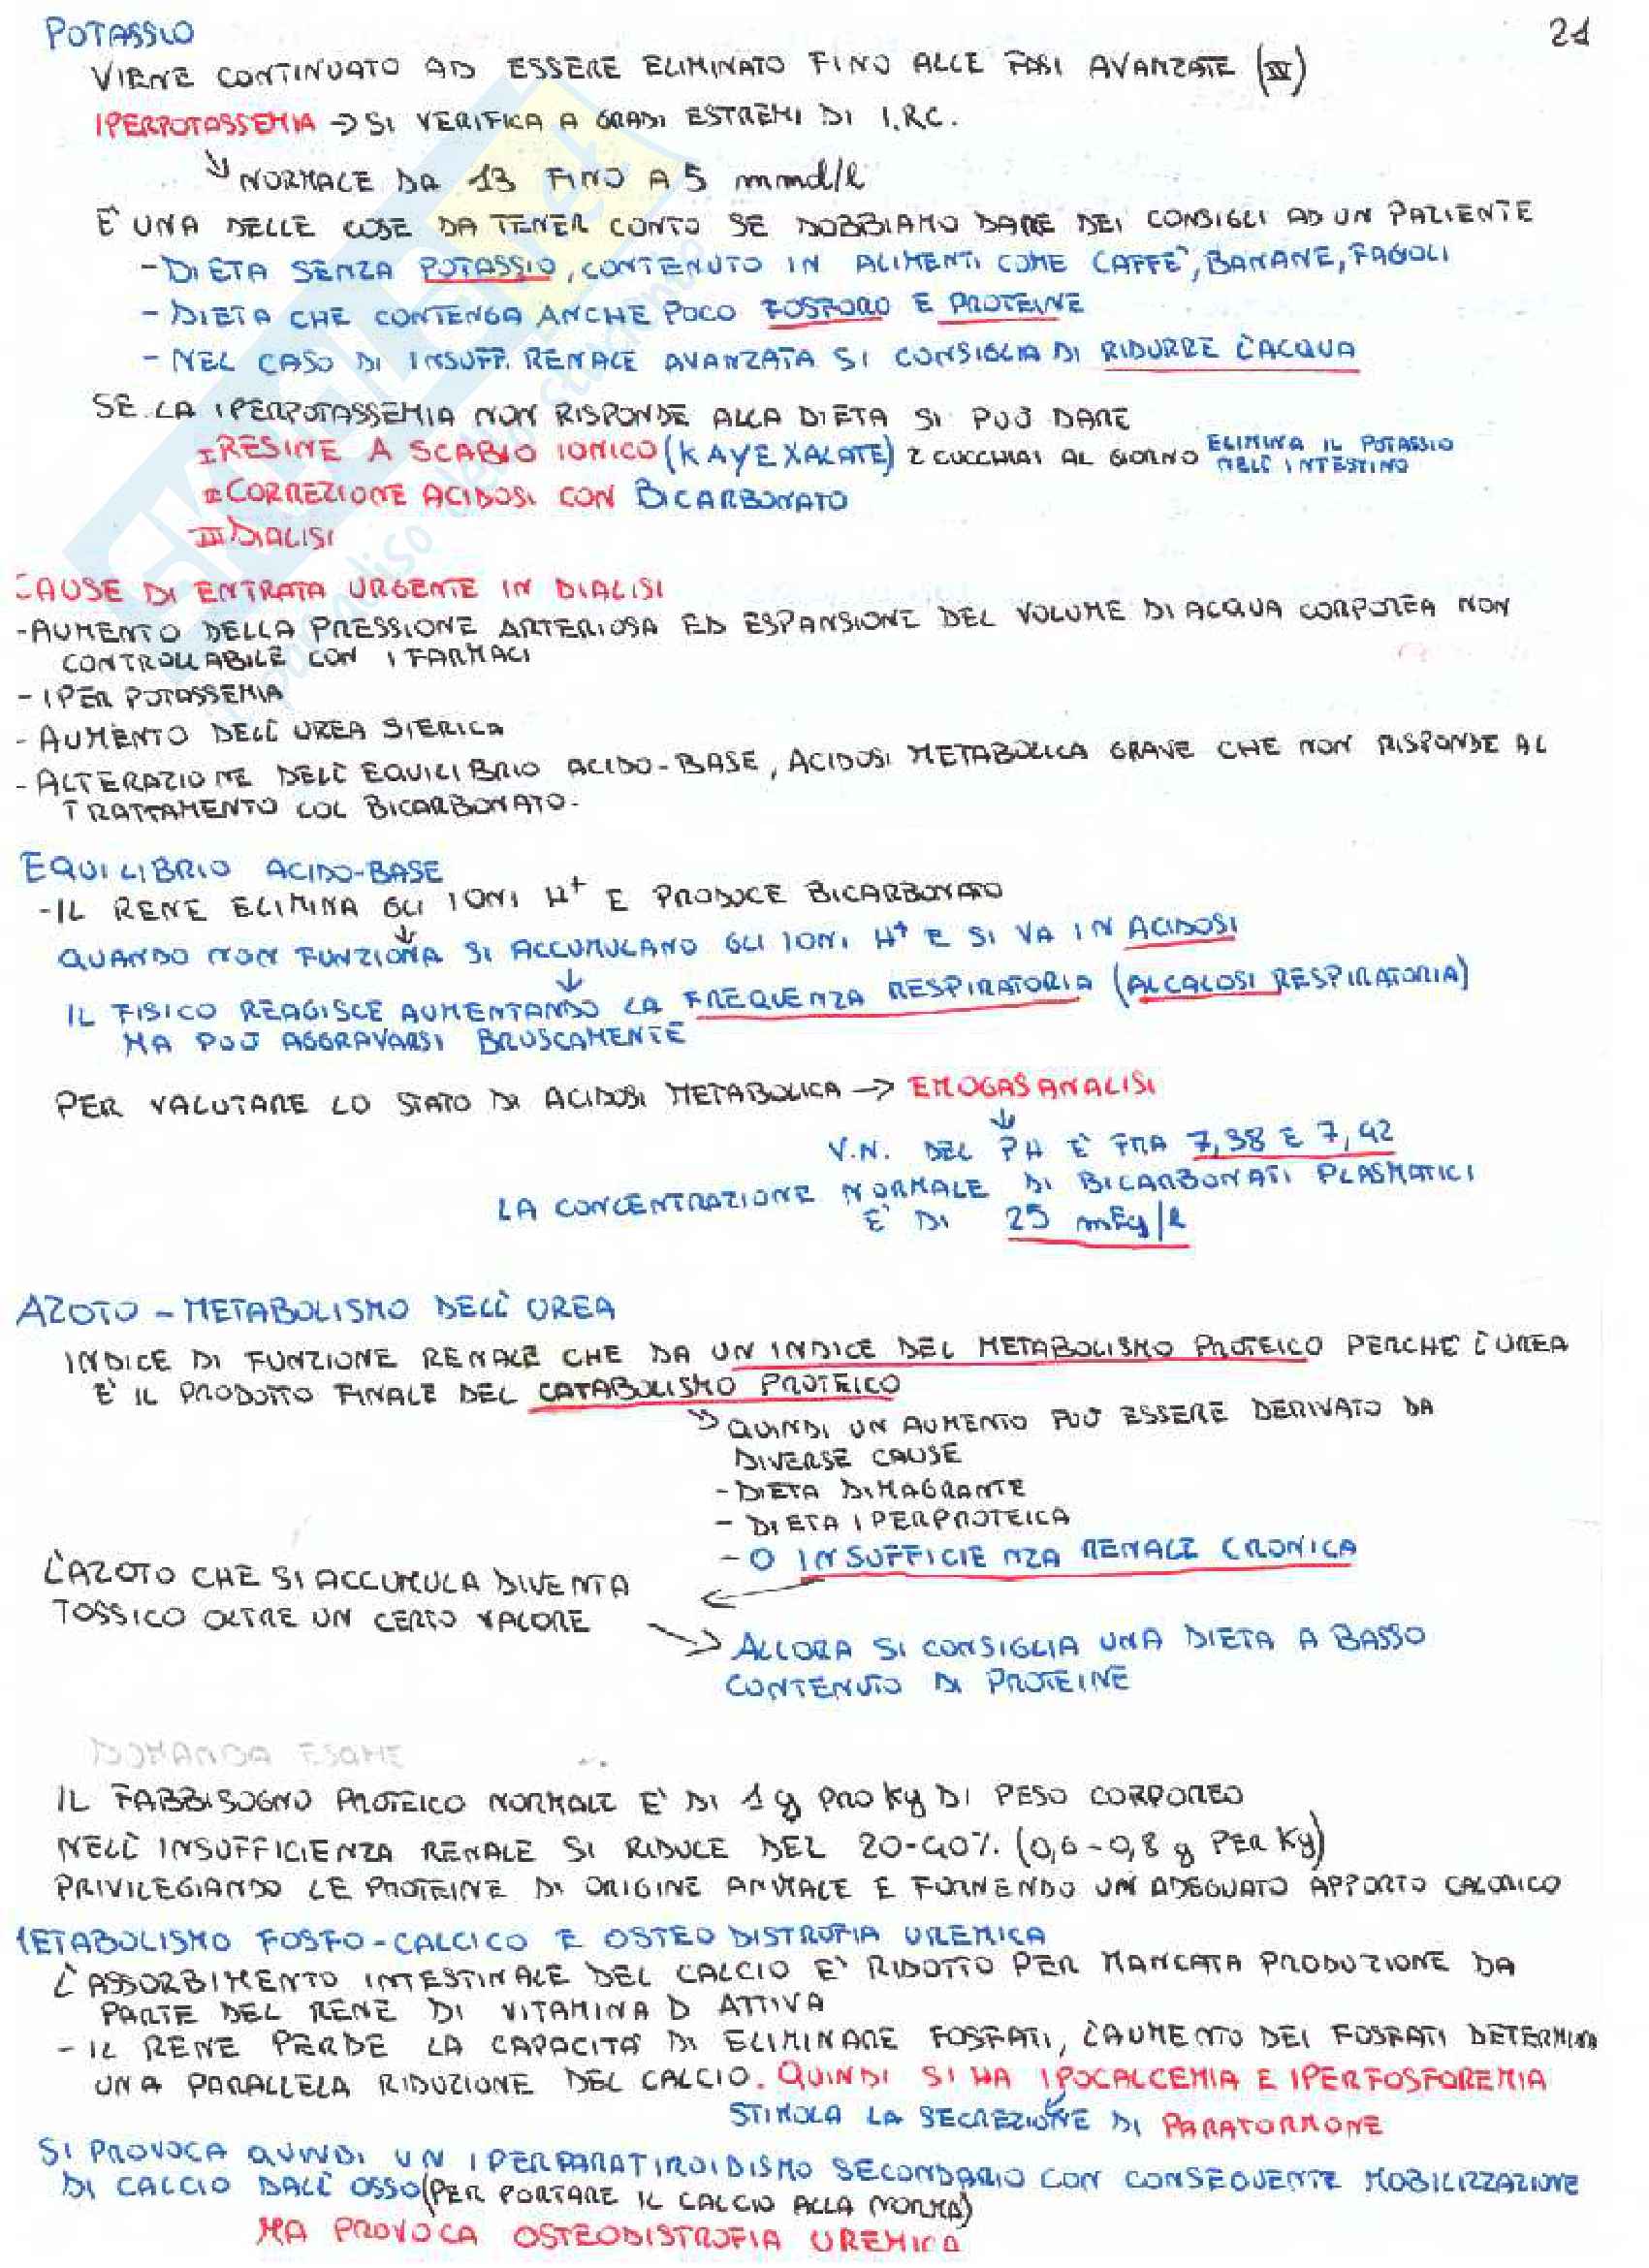 21
POTASSIO
VIENE CONTINUATO AD ESSERE ELIMINATO FINO ALLE FASI AVANZATE (IV)
IPERPOTASSEMIA → SI VERIFICA A GRADI ESTREMI DI I.R.C.
↘ NORMALE DA 13 FINO A 5 mmol/l
E' UNA DELLE COSE DA TENER CONTO SE DOBBIAMO DARE DEI CONSIGLI AD UN PAZIENTE
- DIETA SENZA POTASSIO, CONTENUTO IN ALIMENTI COME CAFFE', BANANE, FAGIOLI
- DIETA CHE CONTENGA ANCHE POCO FOSFORO E PROTEINE
- NEL CASO DI INSUFF. RENALE AVANZATA SI CONSIGLIA DI RIDURRE L'ACQUA
SE LA IPERPOTASSEMIA NON RISPONDE ALLA DIETA SI PUO' DARE
I RESINE A SCABIO IONICO (KAYEXALATE) 2 CUCCHIAI AL GIORNO ELIMINA IL POTASSIO
NELL'INTESTINO
II CORREZIONE ACIDOSI CON BICARBONATO
III DIALISI
CAUSE DI ENTRATA URGENTE IN DIALISI
- AUMENTO DELLA PRESSIONE ARTERIOSA ED ESPANSIONE DEL VOLUME DI ACQUA CORPOREA NON
CONTROLLABILE CON I FARMACI
- IPERPOTASSEMIA
- AUMENTO DELL'UREA SIERICA
- ALTERAZIONE DELL'EQUILIBRIO ACIDO-BASE, ACIDOSI METABOLICA GRAVE CHE NON RISPONDE AL
TRATTAMENTO COL BICARBONATO.
EQUILIBRIO ACIDO-BASE
- IL RENE ELIMINA GLI IONI H+ E PRODUCE BICARBONATO
↓
QUANDO NON FUNZIONA SI ACCUMULANO GLI IONI H+ E SI VA IN ACIDOSI
↓
IL FISICO REAGISCE AUMENTANDO LA FREQUENZA RESPIRATORIA (ALCALOSI RESPIRATORIA)
MA PUO' AGGRAVARSI BRUSCAMENTE
PER VALUTARE LO STATO DI ACIDOSI METABOLICA → EMOGASANALISI
↓
V.N. DEL PH E' FRA 7,38 E 7,42
LA CONCENTRAZIONE NORMALE DI BICARBONATI PLASMATICI
E' DI 25 mEq/l
AZOTO - METABOLISMO DELL'UREA
INDICE DI FUNZIONE RENALE CHE DA UN INDICE DEL METABOLISMO PROTEICO PERCHE' L'UREA
E' IL PRODOTTO FINALE DEL CATABOLISMO PROTEICO
↘ QUINDI UN AUMENTO PUO' ESSERE DERIVATO DA
DIVERSE CAUSE
- DIETA DIMAGRANTE
- DIETA IPERPROTEICA
- O INSUFFICIENZA RENALE CRONICA
L'AZOTO CHE SI ACCUMULA DIVENTA ←
TOSSICO OLTRE UN CERTO VALORE
→ ALLORA SI CONSIGLIA UNA DIETA A BASSO
CONTENUTO DI PROTEINE
DOMANDA ESAME
IL FABBISOGNO PROTEICO NORMALE E' DI 1 g PRO Kg DI PESO CORPOREO
NELL'INSUFFICIENZA RENALE SI RIDUCE DEL 20-40% (0,6-0,8 g PER Kg)
PRIVILEGIANDO LE PROTEINE DI ORIGINE ANIMALE E FORNENDO UN ADEGUATO APPORTO CALORICO
METABOLISMO FOSFO-CALCICO E OSTEODISTROFIA UREMICA
L'ASSORBIMENTO INTESTINALE DEL CALCIO E' RIDOTTO PER MANCATA PRODUZIONE DA
PARTE DEL RENE DI VITAMINA D ATTIVA
- IL RENE PERDE LA CAPACITA' DI ELIMINARE FOSFATI, L'AUMENTO DEI FOSFATI DETERMINA
UNA PARALLELA RIDUZIONE DEL CALCIO. QUINDI SI HA IPOCALCEMIA E IPERFOSFOREMIA
STIMOLA LA SECREZIONE DI PARATORMONE
SI PROVOCA QUINDI UN IPERPARATIROIDISMO SECONDARIO CON CONSEGUENTE MOBILIZZAZIONE
DI CALCIO DALL'OSSO (PER PORTARE IL CALCIO ALLA NORMA)
MA PROVOCA OSTEODISTROFIA UREMICA